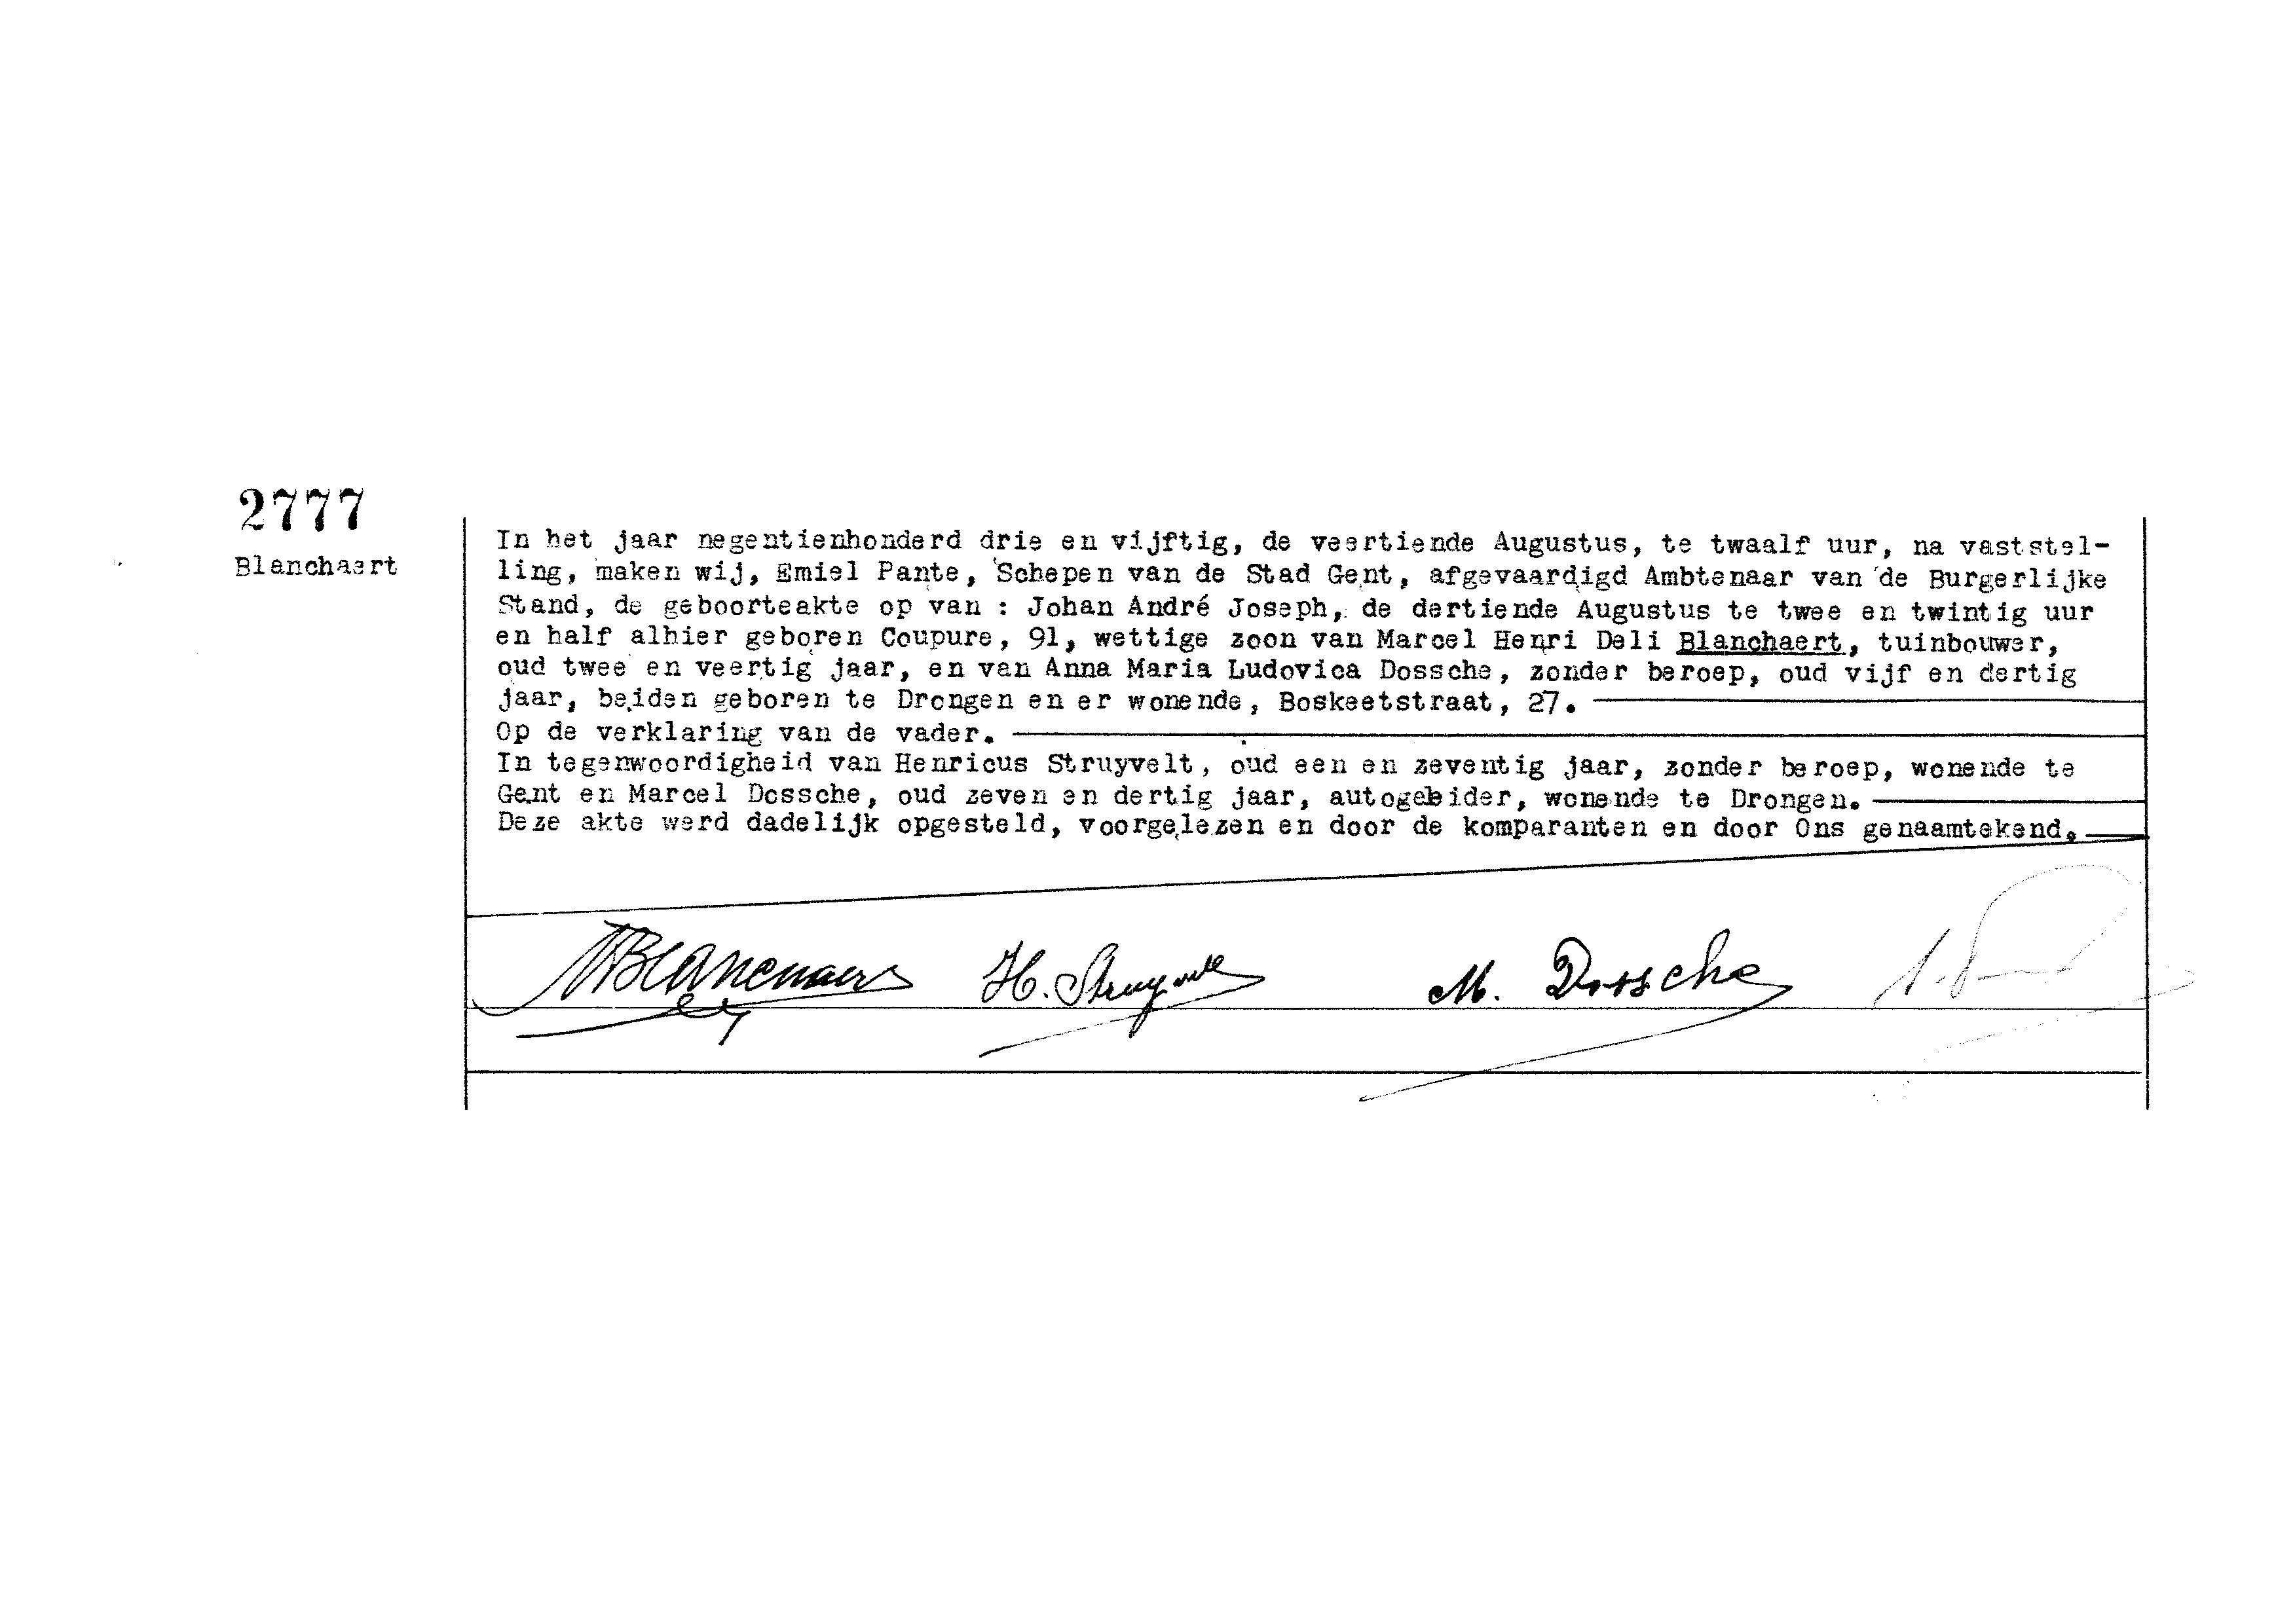 2777
Blanchaert
In het jaar negentienhonderd drie en vijftig, de veertiende Augustus, te twaalf uur, na vaststel-
ling, maken wij, Emiel Pante, Schepen van de Stad Gent, afgevaardigd Ambtenaar van de Burgerlijke
Stand, de geboorteakte op van : Johan André Joseph, de dertiende Augustus te twee en twintig uur
en half alhier geboren Coupure, 91, wettige zoon van Marcel Henri Deli Blanchaert, tuinbouwer,
oud twee en veertig jaar, en van Anna Maria Ludovica Dossche, zonder beroep, oud vijf en dertig
jaar, beiden geboren te Drongen en er wonende, Boskeetstraat, 27.
Op de verklaring van de vader.
In tegenwoordigheid van Henricus Struyvelt, oud een en zeventig jaar, zonder beroep, wonende te
Gent en Marcel Dossche, oud zeven en dertig jaar, autogebider, wonende te Drongen.
Deze akte werd dadelijk opgesteld, voorgelezen en door de komparanten en door Ons genaamtekend.
MBlanchaert H. Struyvelt M. Dossche